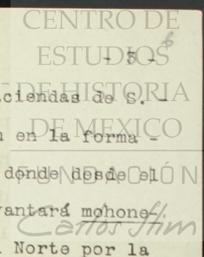 CENTRO DE
ESTUDIOS
- 3 -
6
DE HISTORIA
ciendas de S. -
DE MEXICO
n en la forma -
FUNDACIÓN
donde desde el
vantará mohone-
Carlos Slim
Norte por la